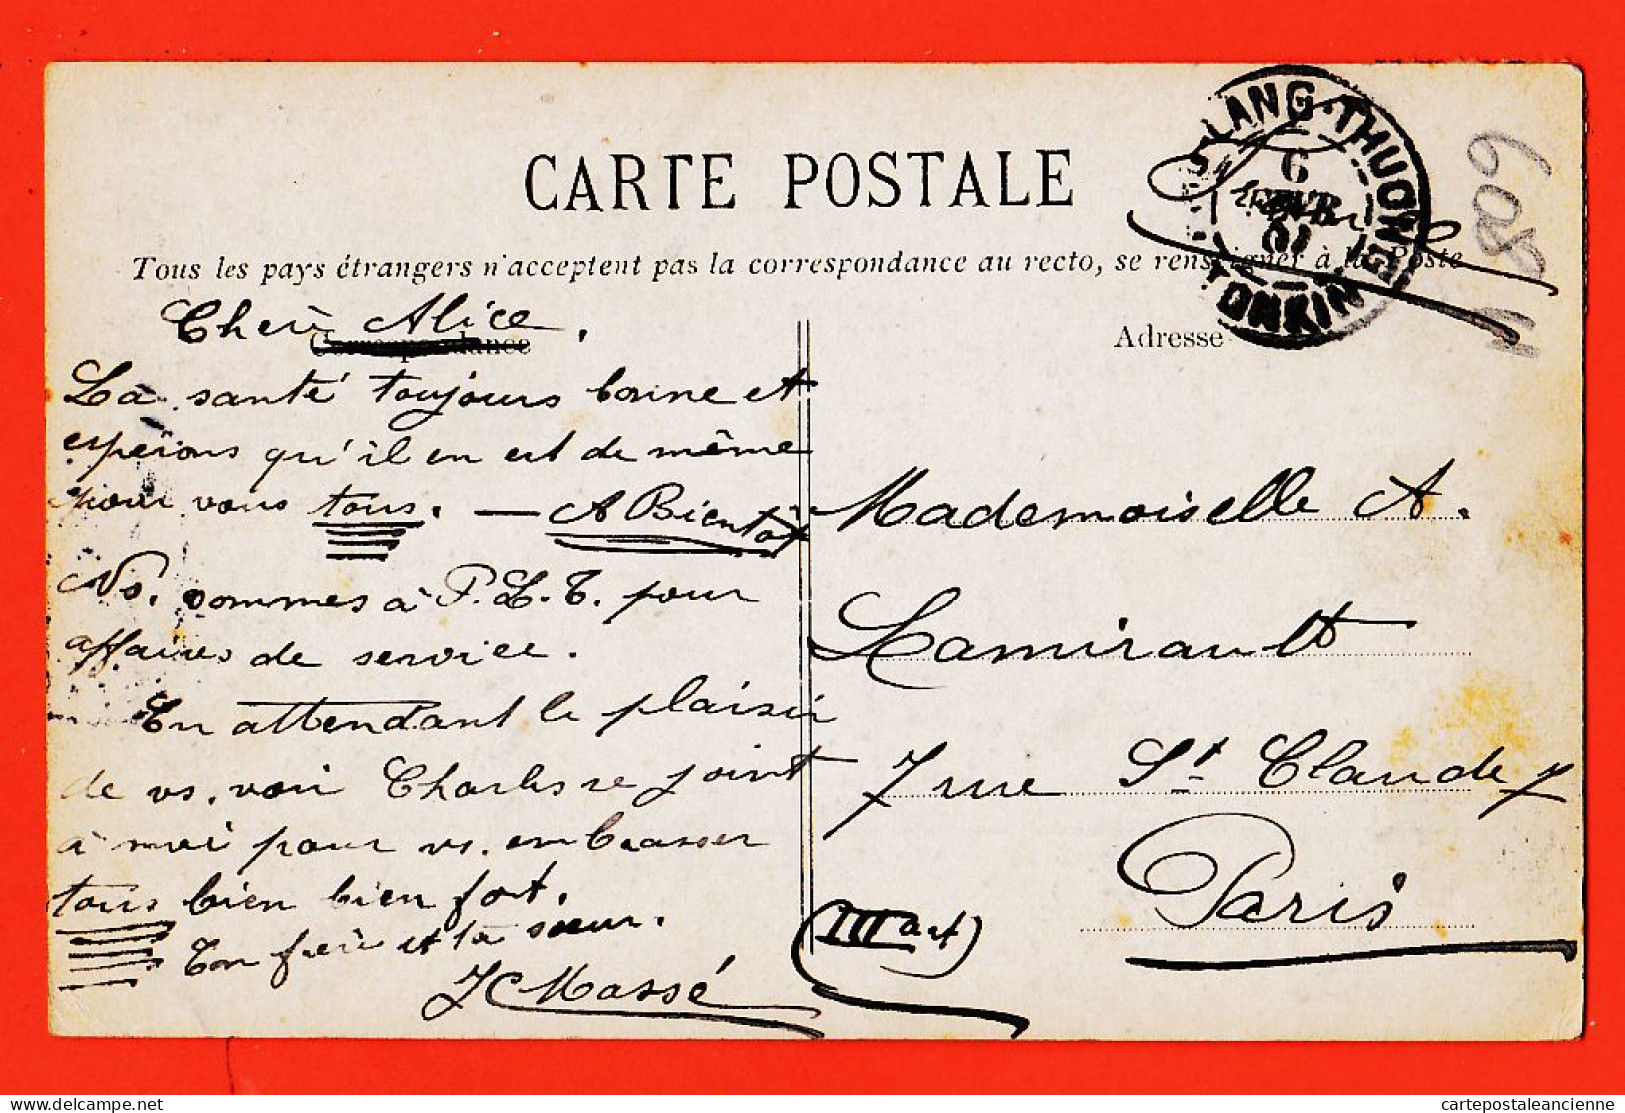 CARTE POSTALE
Tous les pays étrangers n'acceptent pas la correspondance au recto, se renseigner à la Poste
LANG-THUONG
9
FEVR
TONKIN
608
Adresse
Correspondance
Chère Alice.
La santé toujours bonne et
espérons qu'il en est de même
pour vous tous. — A Bientôt
Ns. sommes à P.L.T. pour
affaires de service.
En attendant le plaisir
de vs. voir Charles se joint
à moi pour vs. embrasser
tous bien bien fort.
Ton frère et ta sœur.
Massé
Mademoiselle A.
Lamirault
7 rue St Claude 7
Paris
(III art)
cartepostaleancienne.com